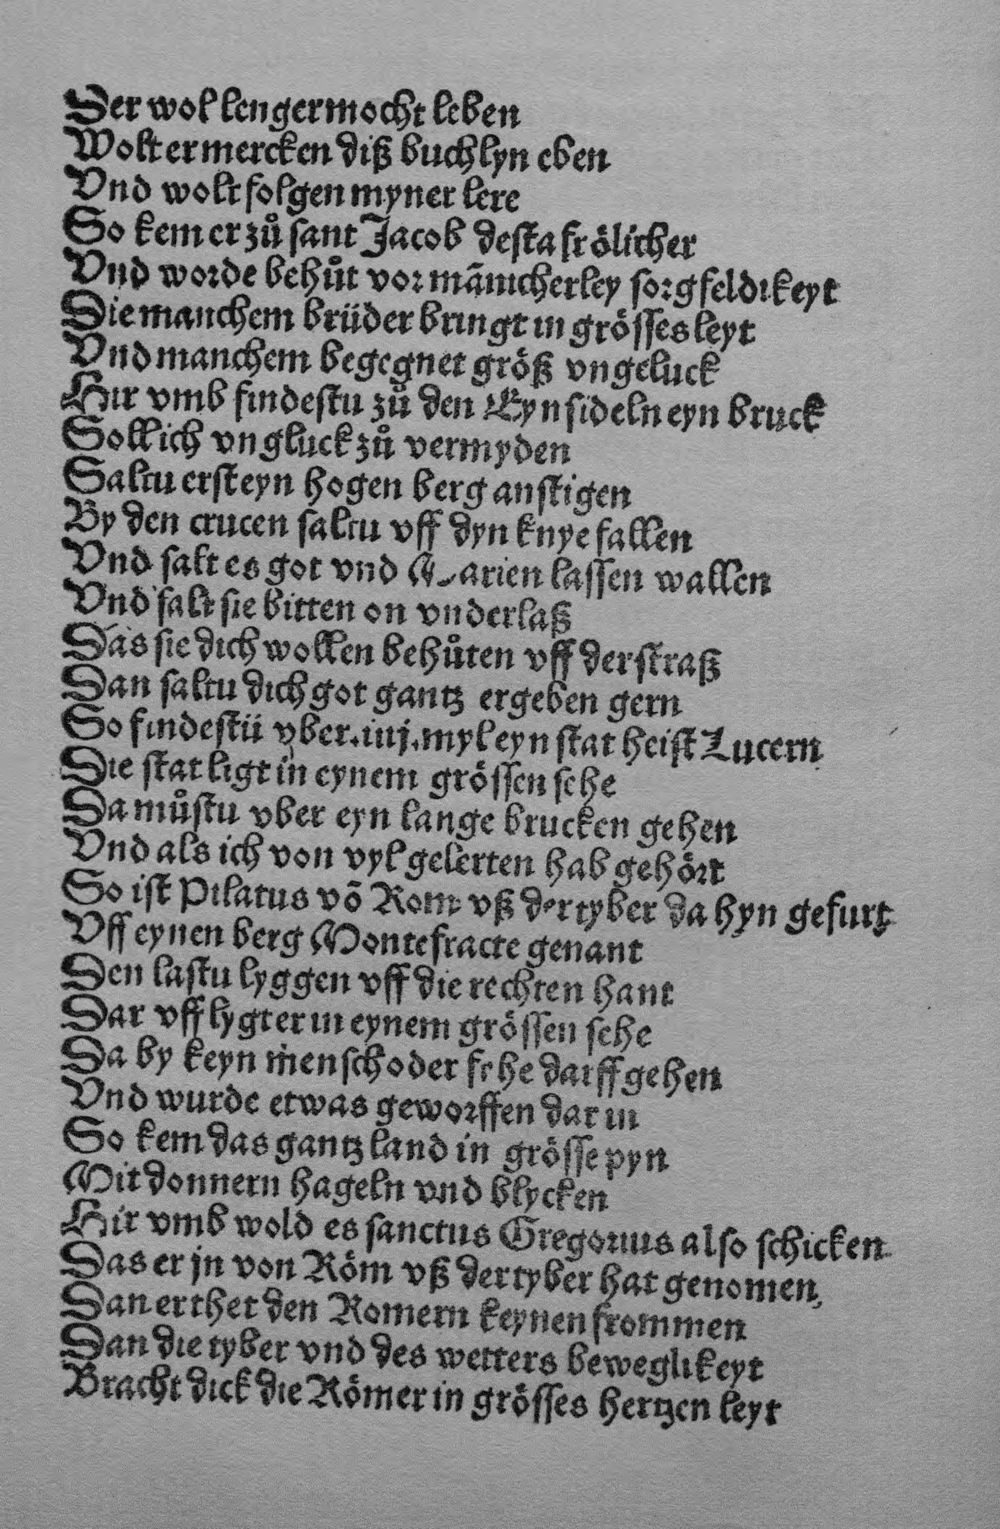 Der wol lenger mocht leben
Wolt er mercken diß buchlyn eben
Vnd wolt folgen myner lere
So kem er zů sant Jacob desta frölicher
Vnd worde behůt vor mãnicherley sorgfeldikeyt
Die manchem brüder bringt in grösses leyt
Vnd manchem begegnet größ vngeluck
Hir vmb findestu zů den Eynsideln eyn bruck
Sollich vngluck zů vermyden
Saltu erst eyn hogen berg anstigen
By den crucen saltu vff dyn knye fallen
Vnd salt es got vnd Marien lassen wallen
Vnd salt sie bitten on vnderlaß
Das sie dich wollen behůten vff der straß
Dan saltu dich got gantz ergeben gern
So findestü vber .iiij. myl eyn stat heist Lucern
Die stat ligt in eynem grössen sehe
Da můstu vber eyn lange brucken gehen
Vnd als ich von vyl gelerten hab gehört
So ist Pilatus võ Rom vß der tyber da hyn gefurt
Vff eynen berg Montefracte genant
Den lastu lyggen vff die rechten hant
Dar vff lygt er in eynem grössen sehe
Da by keyn mensch oder fehe darff gehen
Vnd wurde etwas geworffen dar in
So kem das gantz land in grösse pyn
Mit donnern hageln vnd blycken
Hir vmb wold es sanctus Gregorius also schicken
Das er jn von Röm vß der tyber hat genomen,
Dan er thet den Romern keynen frommen
Dan die tyber vnd des wetters beweglikeyt
Bracht dick die Römer in grösses hertzen leyt